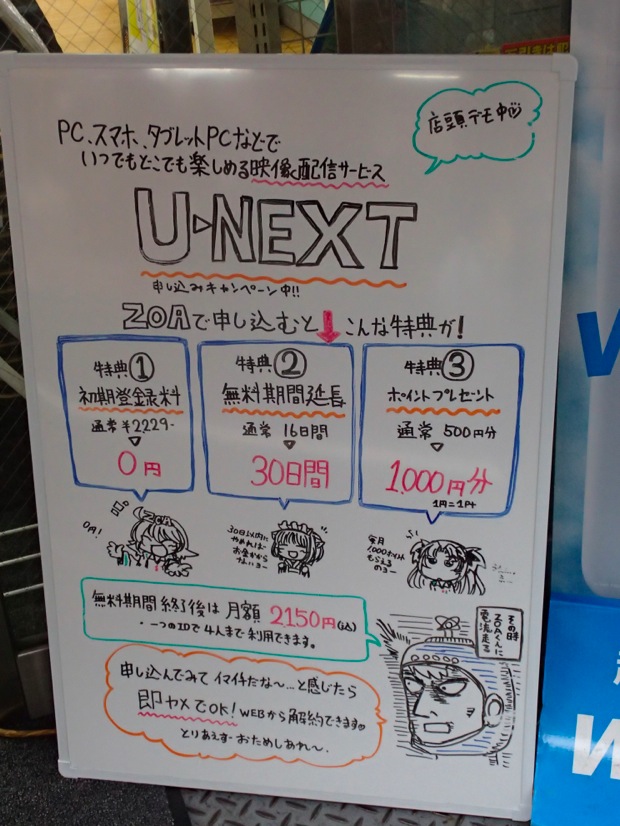 店頭デモ中
PC、スマホ、タブレットPCなどで
いつでもどこでも楽しめる映像配信サービス
U-NEXT
申し込みキャンペーン中!!
ZOAで申し込むと こんな特典が!
特典①
初期登録料
通常 ¥2229-
0円
特典②
無料期間延長
通常 16日間
30日間
特典③
ポイントプレゼント
通常 500円分
1,000円分
1円=1Pt
ZOA
0円!
30日以内に
やめれば
お金かから
ないョー
毎月
1000ポイント
もらえる
のョー
無料期間終了後は月額 2,150円(込)
・一つのIDで4人まで利用できます。
その時
ZOAくんに
電流走る
申し込んでみてイマイチだな〜…と感じたら
即ヤメでOK! WEBから解約できます。
とりあえずおためしあれ〜。
W
W